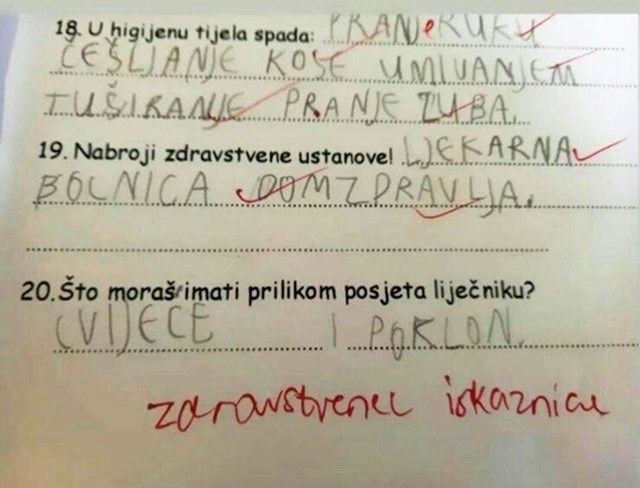 18. U higijenu tijela spada: PRANJe RUKU
ČEŠLJANJE KOSE UMIVANJEM
TUŠIRANJE PRANJE ZUBA.
19. Nabroji zdravstvene ustanove! LJEKARNA
BOLNICA DOM ZDRAVLJA.
20. Što moraš imati prilikom posjeta liječniku?
CVIJEĆE I POKLON.
zdravstvenu iskaznicu